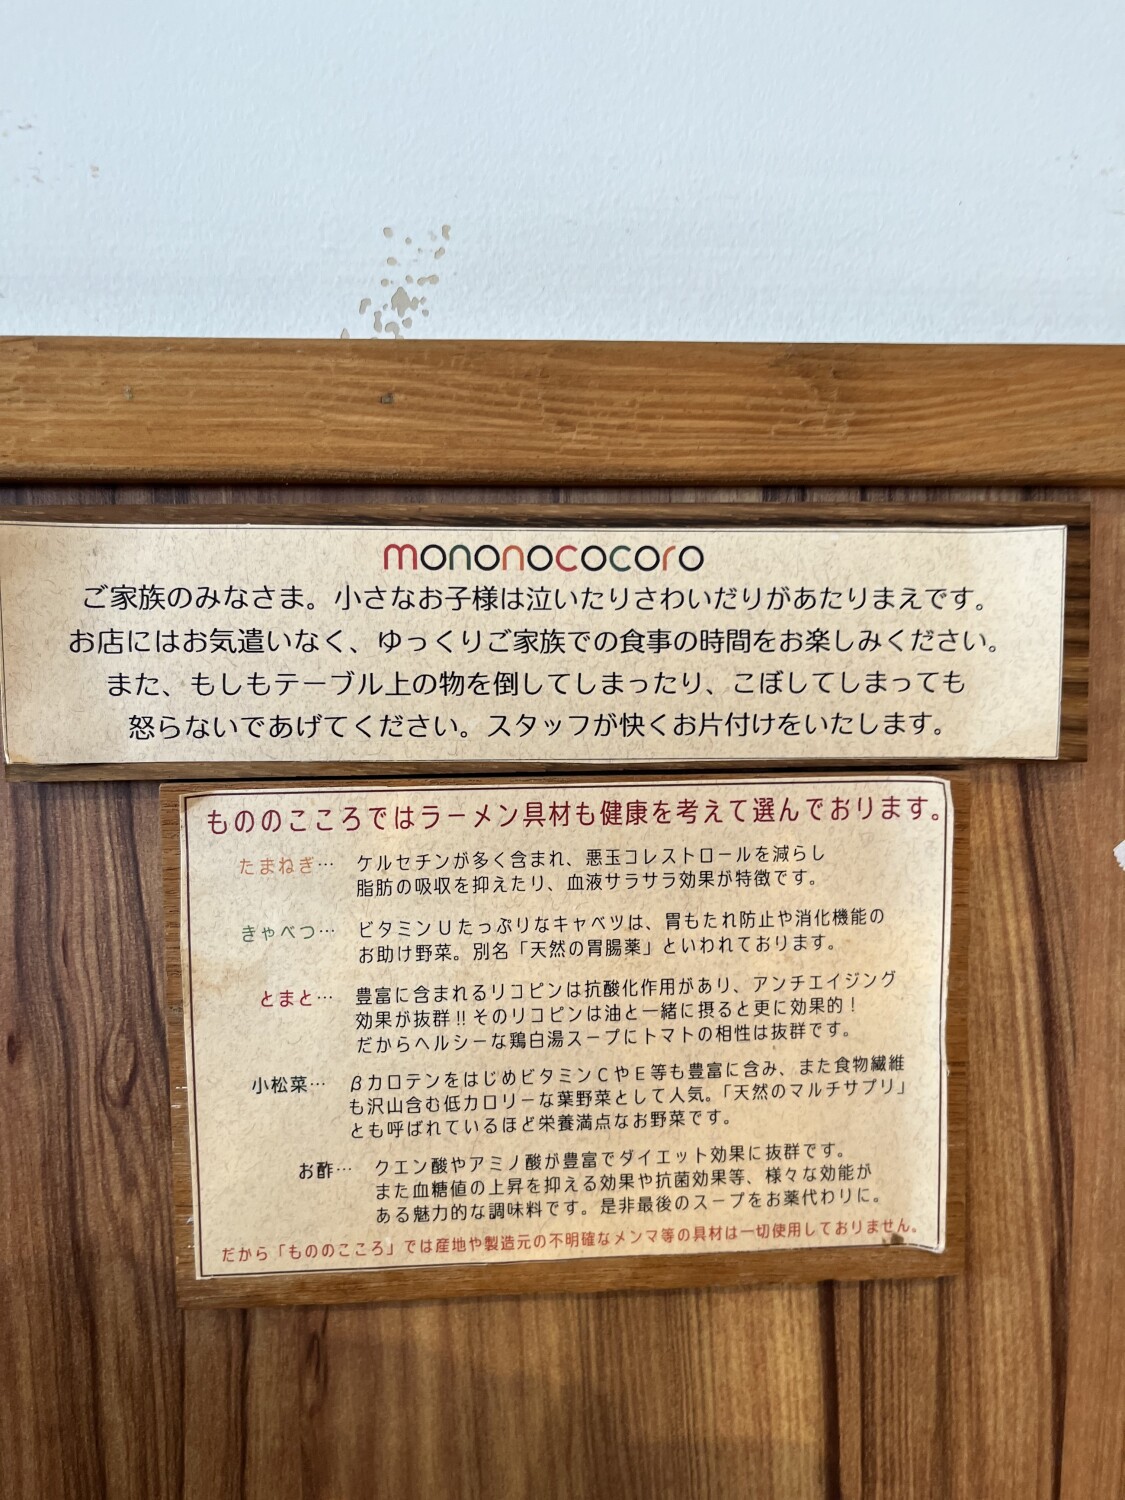 mononococoro
ご家族のみなさま。小さなお子様は泣いたりさわいだりがあたりまえです。
お店にはお気遣いなく、ゆっくりご家族での食事の時間をお楽しみください。
また、もしもテーブル上の物を倒してしまったり、こぼしてしまっても
怒らないであげてください。スタッフが快くお片付けをいたします。
もののこころではラーメン具材も健康を考えて選んでおります。
たまねぎ… ケルセチンが多く含まれ、悪玉コレストロールを減らし
脂肪の吸収を抑えたり、血液サラサラ効果が特徴です。
きゃべつ… ビタミンUたっぷりなキャベツは、胃もたれ防止や消化機能の
お助け野菜。別名「天然の胃腸薬」といわれております。
とまと… 豊富に含まれるリコピンは抗酸化作用があり、アンチエイジング
効果が抜群!!そのリコピンは油と一緒に摂ると更に効果的!
だからヘルシーな鶏白湯スープにトマトの相性は抜群です。
小松菜… βカロテンをはじめビタミンCやE等も豊富に含み、また食物繊維
も沢山含む低カロリーな葉野菜として人気。「天然のマルチサプリ」
とも呼ばれているほど栄養満点なお野菜です。
お酢… クエン酸やアミノ酸が豊富でダイエット効果に抜群です。
また血糖値の上昇を抑える効果や抗菌効果等、様々な効能が
ある魅力的な調味料です。是非最後のスープをお薬代わりに。
だから「もののこころ」では産地や製造元の不明確なメンマ等の具材は一切使用しておりません。